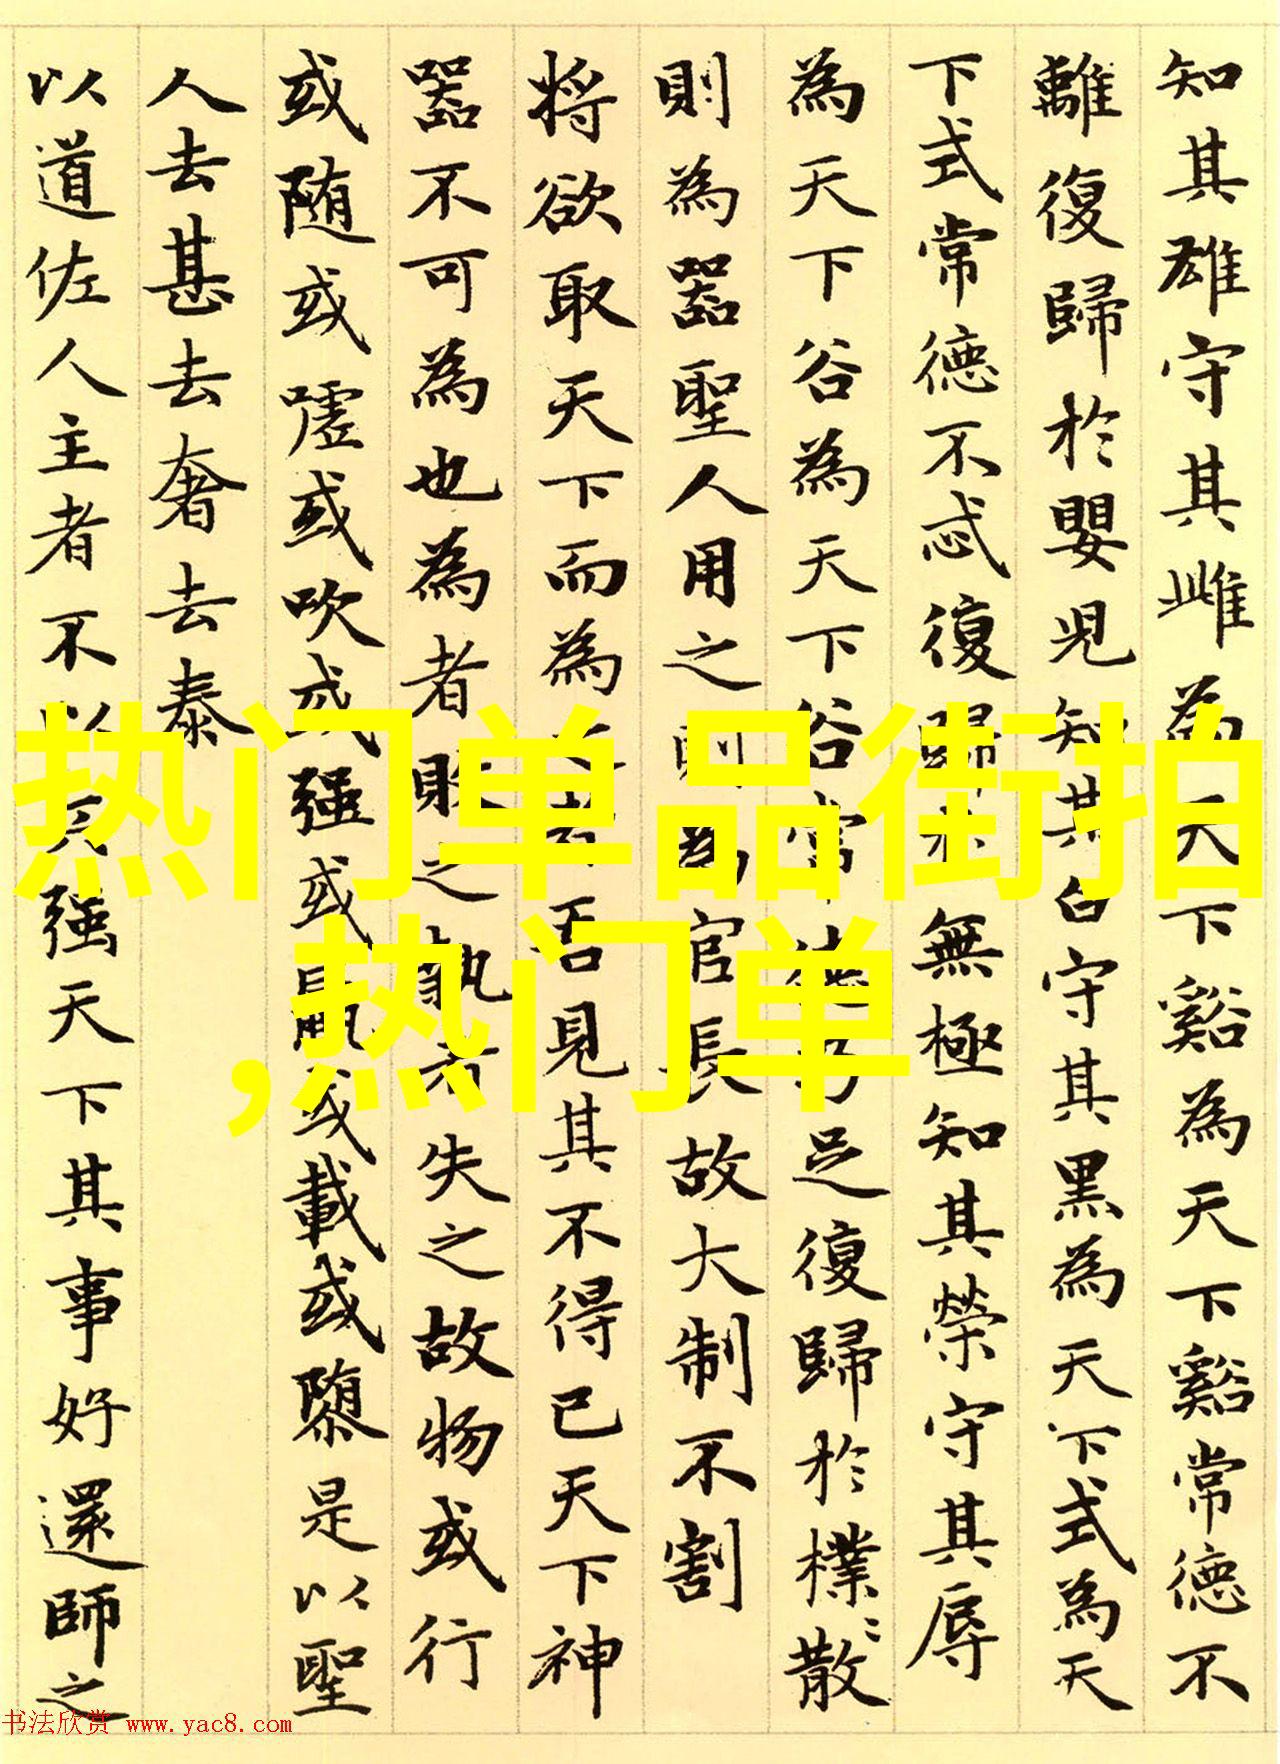 知其雄守其雌為天下谿為天下谿常德不
離復歸於嬰児知其白守其黒為天下式為天
下式常德不忒復歸於無極知其榮守其辱
為天下谷為天下谷常德乃足復歸於樸〻散
則為器聖人用之則為官長故大制不割
将欲取天下而為之者吾見其不得已天下神
器不可為也為者敗之執者失之故物或行
或随或嘘或吹或强或羸或載或隳是以聖
人去甚去奢去泰
以道佐人主者不以兵强天下其事好還師之
热门单品街拍
,热门单
书法欣赏 www.yac8.com